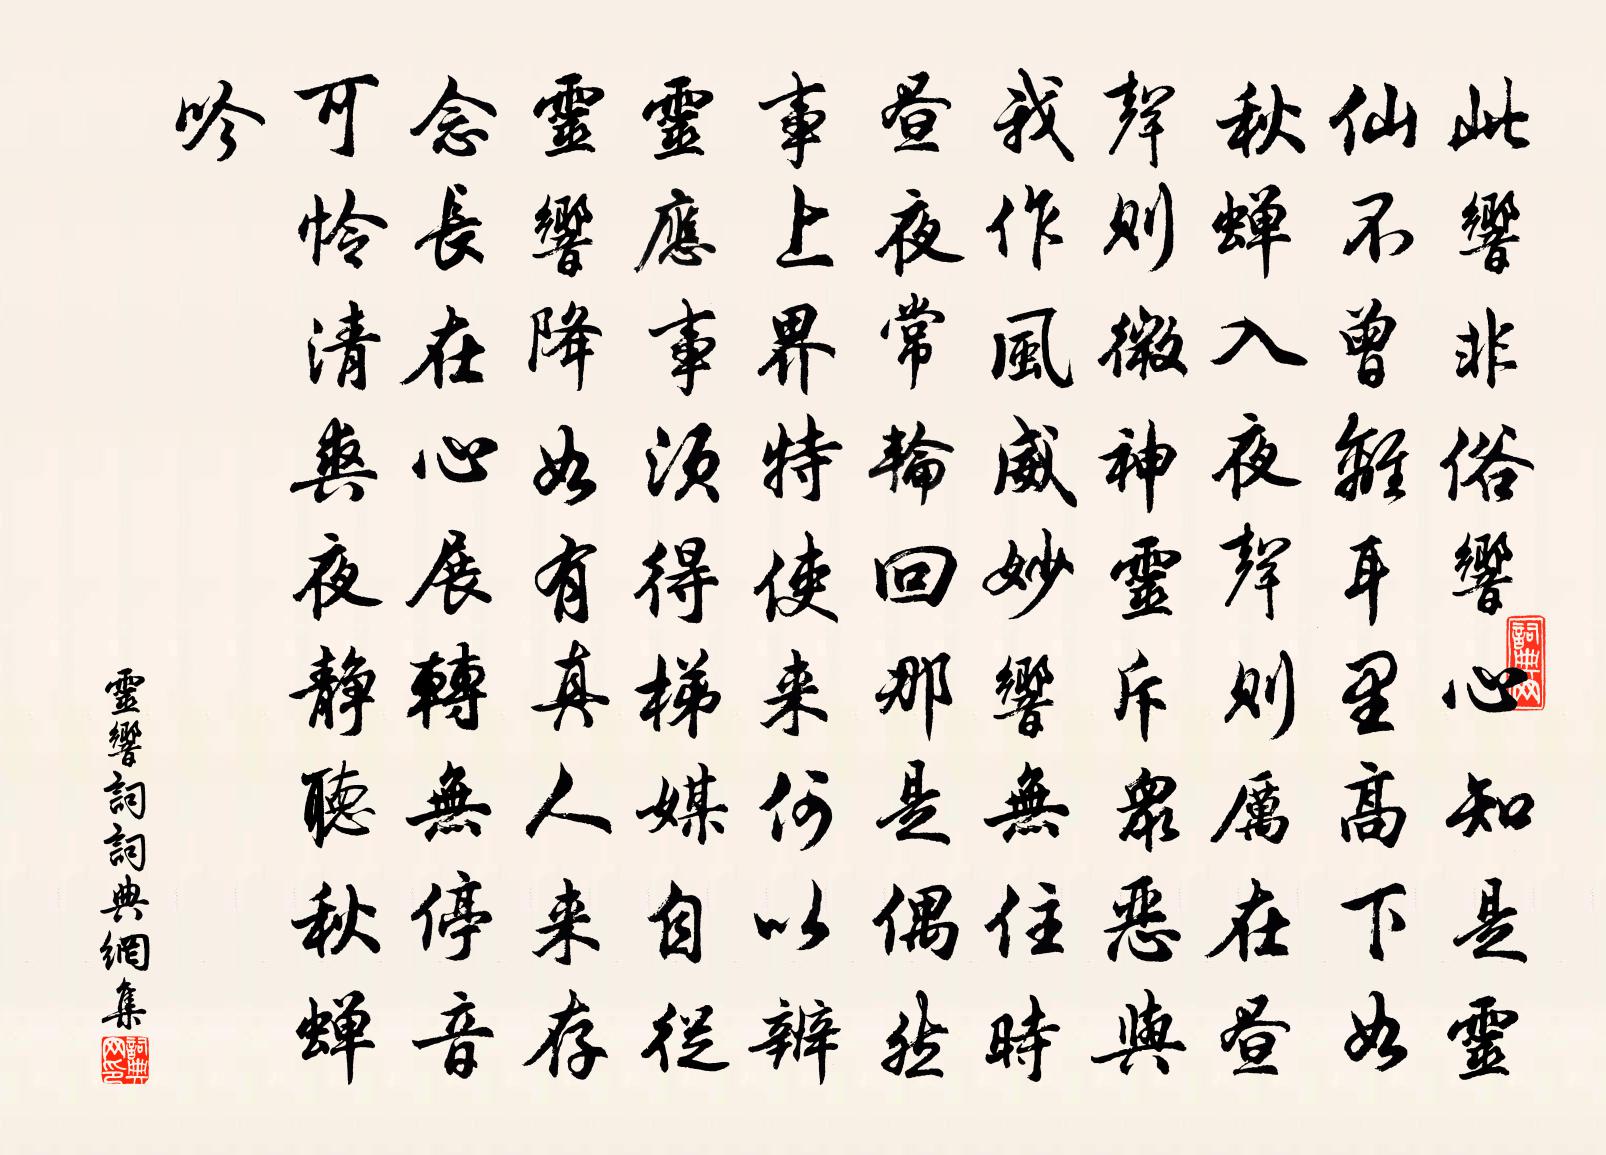 此響非俗響心知是靈
仙不曾離耳里高下如
秋蝉入夜聲則厲在昼
聲則微神靈斥衆惡與
我作風威妙響無住時
昼夜常輪回那是偶然
事上界特使来何以辨
靈應事須得梯媒自從
靈響降如有真人来存
念長在心展轉無停音
可怜清爽夜静聽秋蝉
吟
靈響詞詞典網集
詞典网
詞典网印